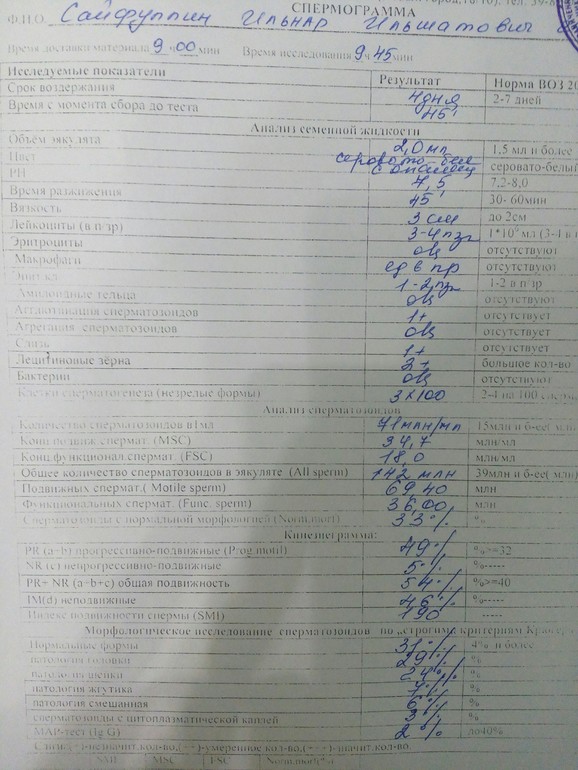 СПЕРМОГРАММА
Ф.И.О. Сайфуллин Ильнар Ильшатович
Время доставки материала 9 ч 00 мин Время исследования 9 ч 45 мин
Исследуемые показатели Результат Норма ВОЗ 20
Срок воздержания 4 дня 2-7 дней
Время с момента сбора до теста 45'
Анализ семенной жидкости
Объём эякулята 2,0 мл 1,5 мл и более
Цвет серовато-бел с опалесц серовато-белый
PH 7,5 7,2-8,0
Время разжижения 45' 30- 60мин
Вязкость 3 см до 2см
Лейкоциты (в п/зр) 3-4 п/зр 1*10⁶ мл (3-4 в
Эритроциты отс отсутствуют
Макрофаги ед в пр отсутствуют
Эпит.кл 1-2 п/зр 1-2 в п/зр
Амилоидные тельца отс отсутствуют
Агглютинация сперматозоидов 1+ отсутствует
Агрегация сперматозоидов отс отсутствует
Слизь 1+ отсутствует
Лецитиновые зёрна 2+ большое кол-во
Бактерии отс отсутствуют
Клетки сперматогенеза (незрелые формы) 3x100 2-4 на 100
Анализ сперматозоидов
Количество сперматозоидов в1мл 71 млн/мл 15млн и б-ее
Конц.подвиж.спермат. (MSC) 34,7 млн/мл
Конц.функционал.спермат. (FSC) 18,0 млн/мл
Общее количество сперматозоидов в эякуляте (All sperm) 142 млн 39млн и б-ее( млн
Подвижных спермат.( Motile sperm) 69,40 млн
Функциональных спермат. (Func. sperm) 36,00 млн
Сперматозоиды с нормальной морфологией (Norm.morf) 33% %
Кинезиграмма:
PR (a+b) прогрессивно-подвижные (Prog.motil) 49% %>=32
NR (c) непрогрессивно-подвижные 5% %-----
PR+ NR (a+b+c) общая подвижность 54% %>=40
IM(d) неподвижные 46% %-----
Индекс подвижности спермы (SMI) 190 -----
Морфологическое исследование сперматозоидов по „строгим„ критериям Крюгера
Нормальные формы 31% 4% и более
патология головки 29% %
патология шейки 24% %
патология жгутика 7% %
патология смешанная 6% %
сперматозоиды с цитоплазматической каплей 3% %
MAР-тест (Ig G) 2% до40%
Слизь:(+)-незначит.кол-во,(++)-умеренное кол-во,(+++)-значит.кол-во.
SMI MSC FSC Norm.morf